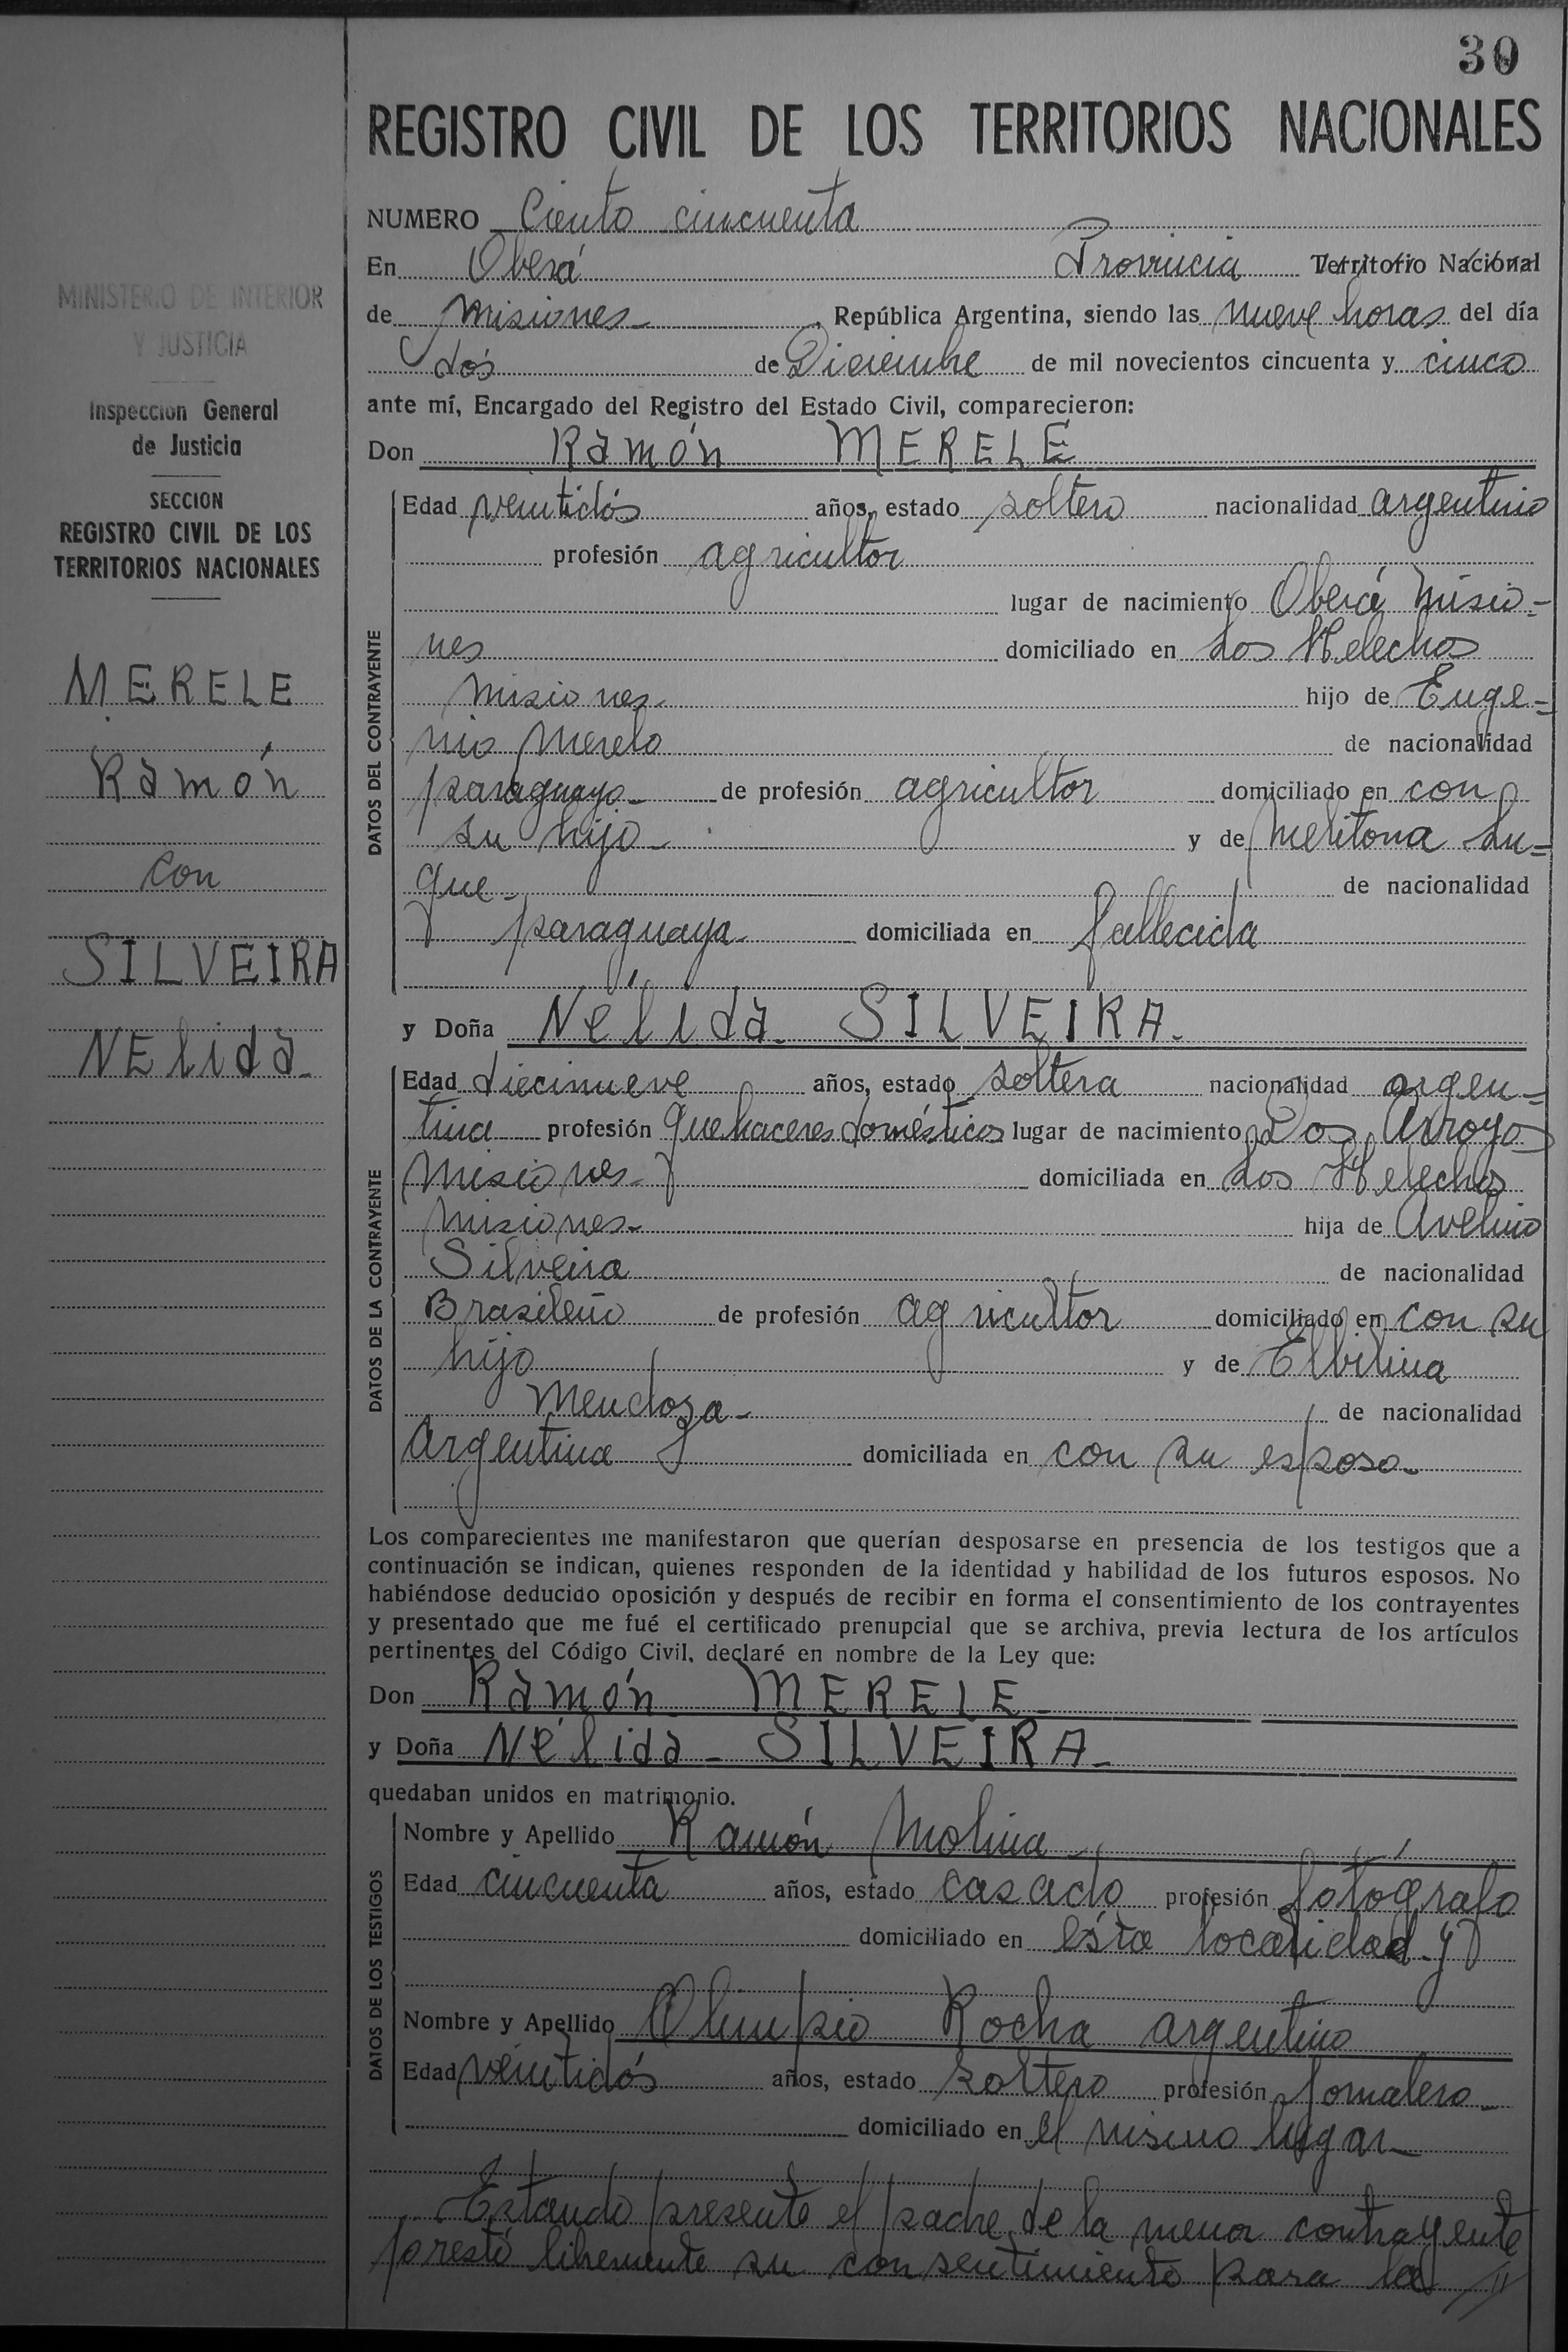 30
REGISTRO CIVIL DE LOS TERRITORIOS NACIONALES
NUMERO Ciento cincuenta
En Oberá Provincia Territorio Nacional
de Misiones, República Argentina, siendo las nueve horas del día
dos de Diciembre de mil novecientos cincuenta y cinco
ante mí, Encargado del Registro del Estado Civil, comparecieron:
Don Ramón MERELE
DATOS DEL CONTRAYENTE
Edad veintidós años, estado soltero nacionalidad argentino
profesión agricultor
lugar de nacimiento Oberá Misio-
nes domiciliado en Los Helechos
Misiones- hijo de Euge-
nio Merelo de nacionalidad
paraguayo- de profesión agricultor domiciliado en con
su hijo- y de Melitona Lu-
que- de nacionalidad
paraguaya- domiciliada en fallecida
y Doña Nélida SILVEIRA.
DATOS DE LA CONTRAYENTE
Edad diecinueve años, estado soltera nacionalidad argen-
tina profesión quehaceres domésticos lugar de nacimiento Dos Arroyos
Misiones- domiciliada en Los Helechos
Misiones- hija de Avelino
Silveira de nacionalidad
Brasileño de profesión agricultor domiciliado en con su
hijo y de Elbilina
Mendoza- de nacionalidad
Argentina domiciliada en con su esposo-
Los comparecientes me manifestaron que querían desposarse en presencia de los testigos que a
continuación se indican, quienes responden de la identidad y habilidad de los futuros esposos. No
habiéndose deducido oposición y después de recibir en forma el consentimiento de los contrayentes
y presentado que me fué el certificado prenupcial que se archiva, previa lectura de los artículos
pertinentes del Código Civil, declaré en nombre de la Ley que:
Don Ramón MERELE-
y Doña Nélida - SILVEIRA-
quedaban unidos en matrimonio.
DATOS DE LOS TESTIGOS
Nombre y Apellido Ramón Molina-
Edad cincuenta años, estado casado profesión fotógrafo
domiciliado en ésta localidad y
Nombre y Apellido Olimpio Rocha argentino
Edad veintidós años, estado soltero profesión Jornalero-
domiciliado en el mismo lugar-
Estando presente el padre de la menor contrayente
prestó libremente su consentimiento para la //
MINISTERIO DE INTERIOR
Y JUSTICIA
Inspección General
de Justicia
SECCION
REGISTRO CIVIL DE LOS
TERRITORIOS NACIONALES
MERELE
Ramón
con
SILVEIRA
NElida-